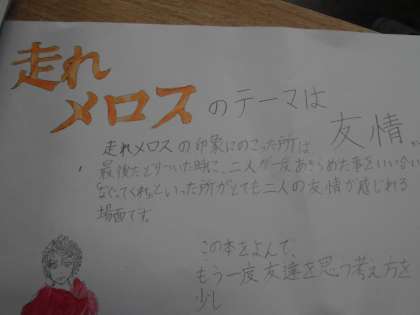 走れ
メロスのテーマは
友情
走れメロスの印象にのこった所は
最後たどりついた時に、二人が一度あきらめた事をいい合い
なぐってくれといった所がとても二人の友情が感じれる
場面です。
この本をよんで、
もう一度友達を思う考え方を
少し